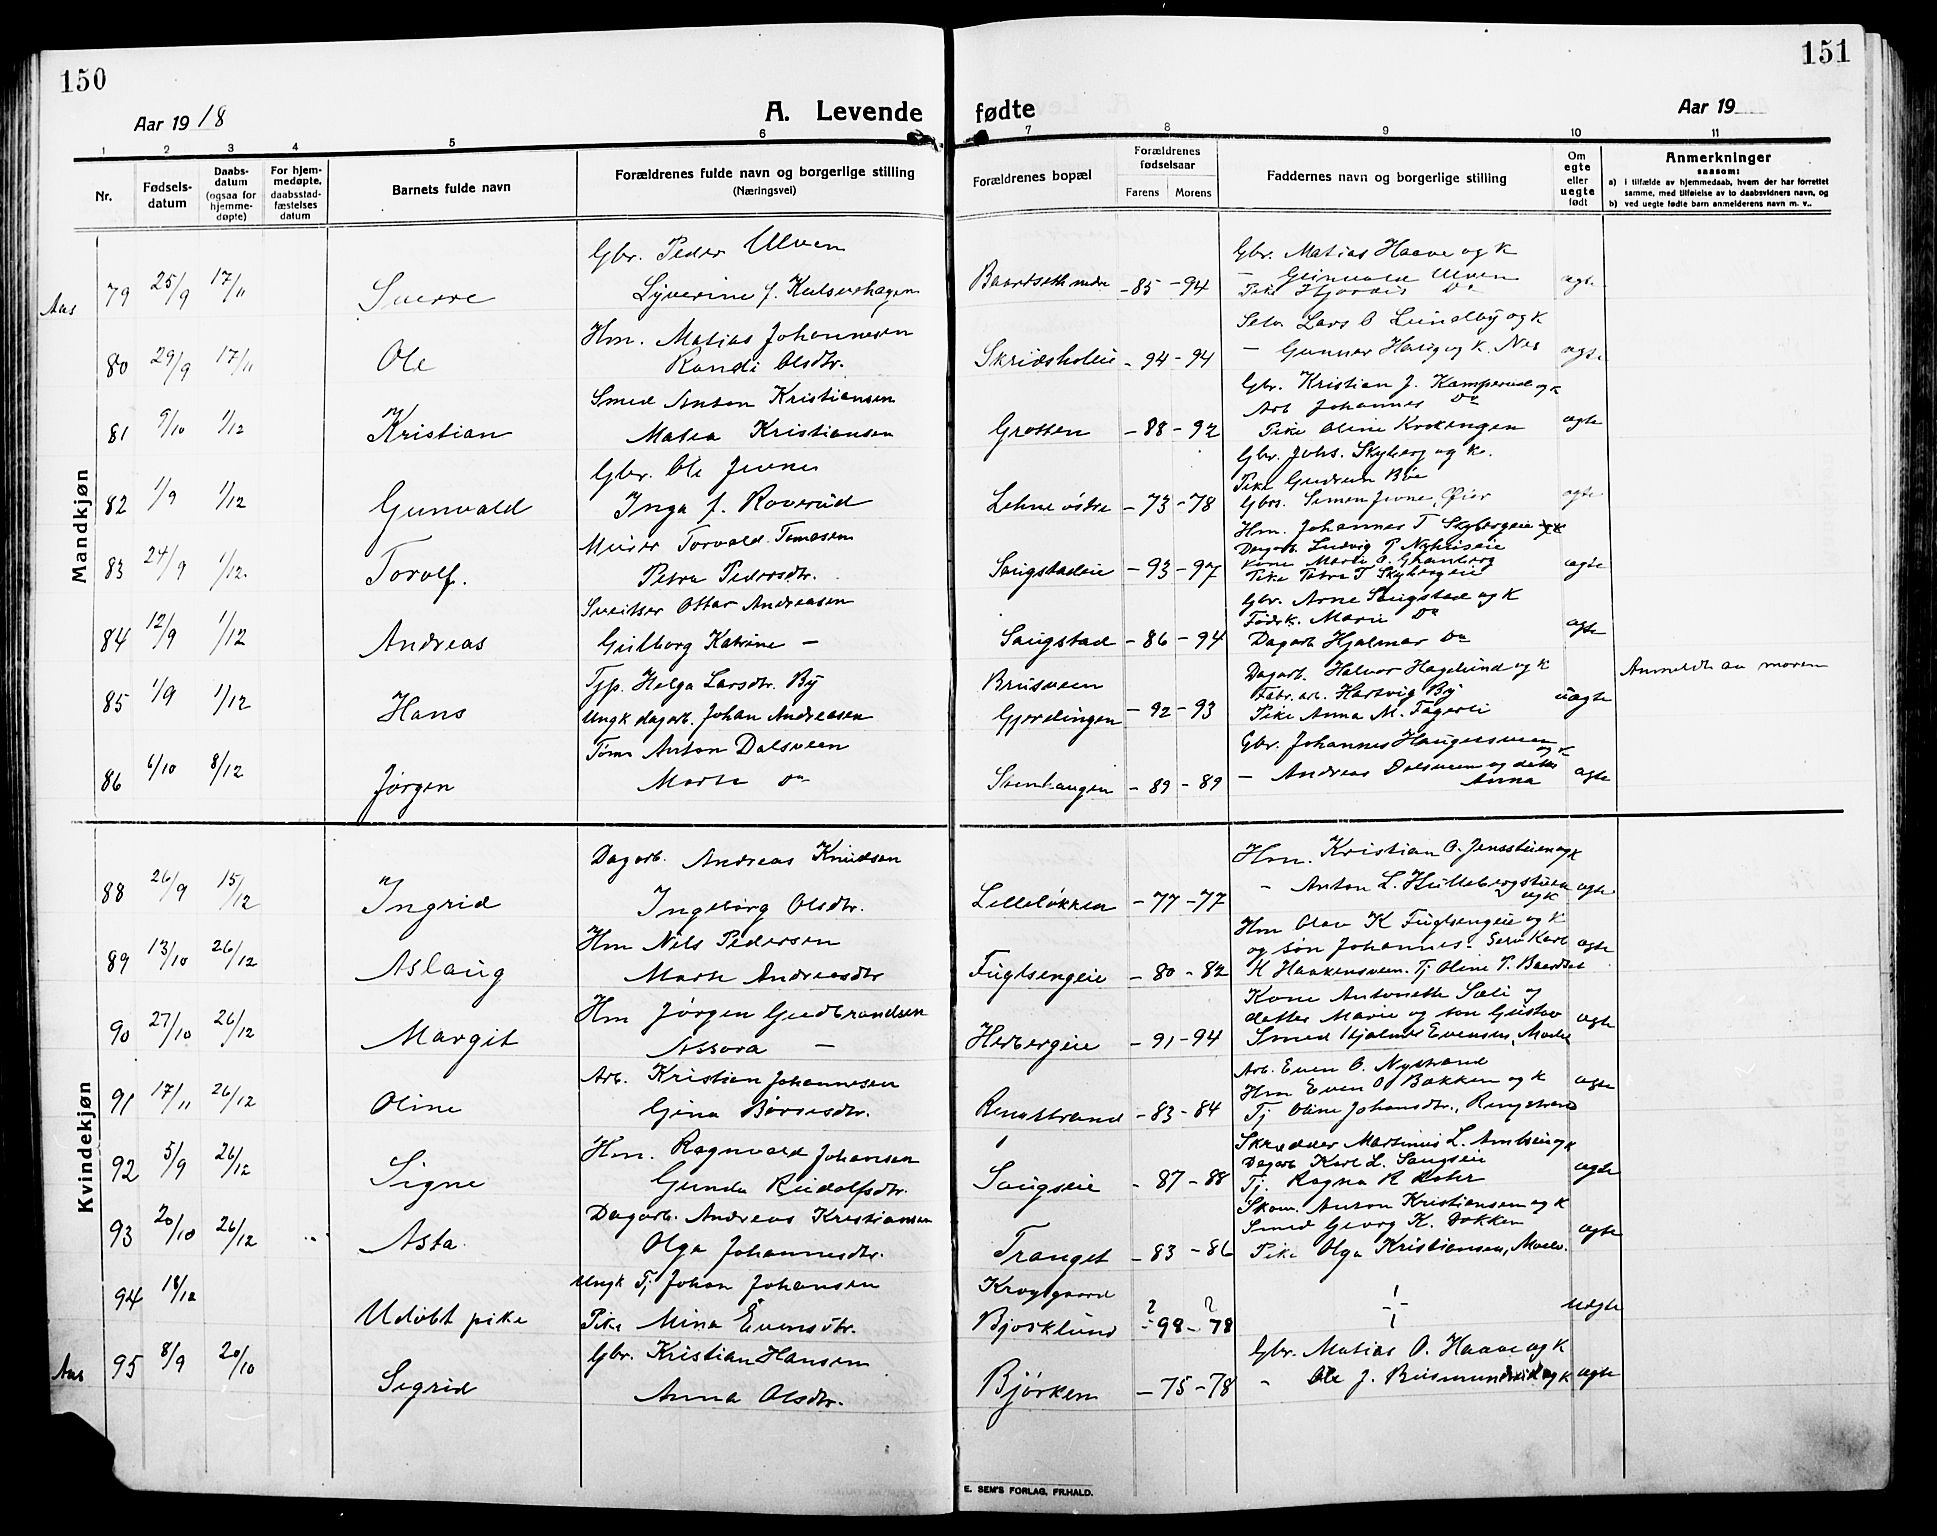 150
Aar 1918
A. Levende
1 2 3 4 5 6
Nr. Fødsels-datum Daabs-datum (ogsaa for hjemme-døpte) For hjem-medøpte, daabsstad-fæstelses datum Barnets fulde navn Forældrenes fulde navn og borgerlige stilling (Næringsvei)
151
fødte
Aar 19
7 8 9 10 11
Forældrenes bopæl Forældrenes fødselsaar Farens Morens Faddernes navn og borgerlige stilling Om egte eller uegte født Anmerkninger
saasom:
a) i tilfælde av hjemmedaab, hvem der har forrettet samme, med tilføielse av to daabsvidners navn, og
b) ved uegte fødte barn anmelderens navn m. v..
Mandkjøn
Gbr. Peder Ulven Gbr. Matias Haave og K
Aas 79 25/9 17/11 Sverre Lyverine f. Baardseth nedre -85 -94 - Ulven ægte
Pike Hjørdis Do
Hm. Matias Johannesen Selv. Lars O Lundby og K
80 29/9 17/11 Ole Randi Olsdtr. -94 -94 - Gunnar og K. Nes ægte
Smed Anton Kristiansen Gbr. Kristian J. Kamperud og K
Arb Johannes Do
81 9/10 1/12 Kristian Matea Kristiansen Grotten -88 -92 Pike Oline Krokengen ægte
Gbr. Ole Jevne Gbr. Johs. Skyberg og K.
Pike Gudrun Bøe
82 1/9 1/12 Gunvald Inga f. Roverud Lehne østre -73 -78 Gbrs. Simen Jevne, Øier ægte
Murer Torvald Tomasen Hm. Johannes T Skybergeie og K
Dagarb. Ludvig P Nyhuseie
83 24/9 1/12. Torolf. Petra Pedersdtr. Saugstadeie -93 -97 Kone Marte O. Granberg ægte
Pike Petra T Skybergeie
Sveitser Ottar Andreasen Gbr. Arne Saugstad og K
Føderk. Marie Do
84 12/9 1/12 Andreas Guilborg Katrine - Saugstad -86 -94 Dagarb Hjalmar Do ægte
Tjp. Helga Larsdtr. By Brusveen Dagarb. Halvor Hagelund og K Anmeldt av moren
85 1/9 1/12 Hans Fabr.arb. Hartvig By uægte
Ungk dagarb. Johan Andreasen Gjørdingen -92 -93 Pike Anna M. Fagerli
Tøm Anton Dalsveen Gbr. Johannes Haugersveen og K
86 6/10 8/12 Jørgen Marte Do Stenhaugen -89 -89 - Andreas Dalsveen og datter Anna ægte
Kvindekjøn
Dagarb. Andreas Knudsen Hm. Kristian O. Jensstuen og K
88 26/9 15/12 Ingrid Ingeborg Olsdtr. Lilleløkken -77 -77 - Anton L. Hullebergstuen og K ægte
Hm Nils Pedersen Hm Olav K Fuglsengeie og K
89 13/10 26/12 Aslaug Marte Andreasdtr Fuglsengeie -80 -82 og søn Johannes - Karl ægte
H Haakensveen. Tj Oline P. Baardset
Hm Jørgen Gudbrandsen Kone Antonette Sæli og
90 27/10 26/12 Margit Assora - Herbergeie -91 -94 datter Marie og søn Gustav ægte
Smed Hjalmar Evensen, Moelv
Arb. Kristian Johannesen Arb. Even O. Nystrand
91 17/11 26/12 Oline Gina Børresdtr. -83 -84 Hm Even O. Bakken og K ægte
Tj Oline Johansdtr., Ringstrand
Hm. Ragnvald Johansen Skrædder Martinius L. og K
92 5/9 26/12 Signe Gunda Rudolfsdtr. Saugseie -87 -88 Dagarb Karl L. Saugseie ægte
Tj. Ragna R Rohr
Dagarb. Andreas Kristiansen Skom. Anton Kristiansen og K
93 20/10 26/12 Asta Olga Johannesdtr. Tranget -83 -86 Smed Georg K. Dokken ægte
Pike Olga Kristiansen, Moelv.
Ungk Tj. Johan Johansen Kroggaard
94 18/12 Udøbt pike Pike Mina Evensdtr. Bjørklund ? -98 ? -78 uægte
Gbr. Kristian Hansen Gbr. Matias O. Haave og K
Aas 95 8/9 20/10 Sigrid Anna Olsdtr. Bjørken -75 -78 - Ole J. og K ægte
E. SEM'S FORLAG, FR.HALD.